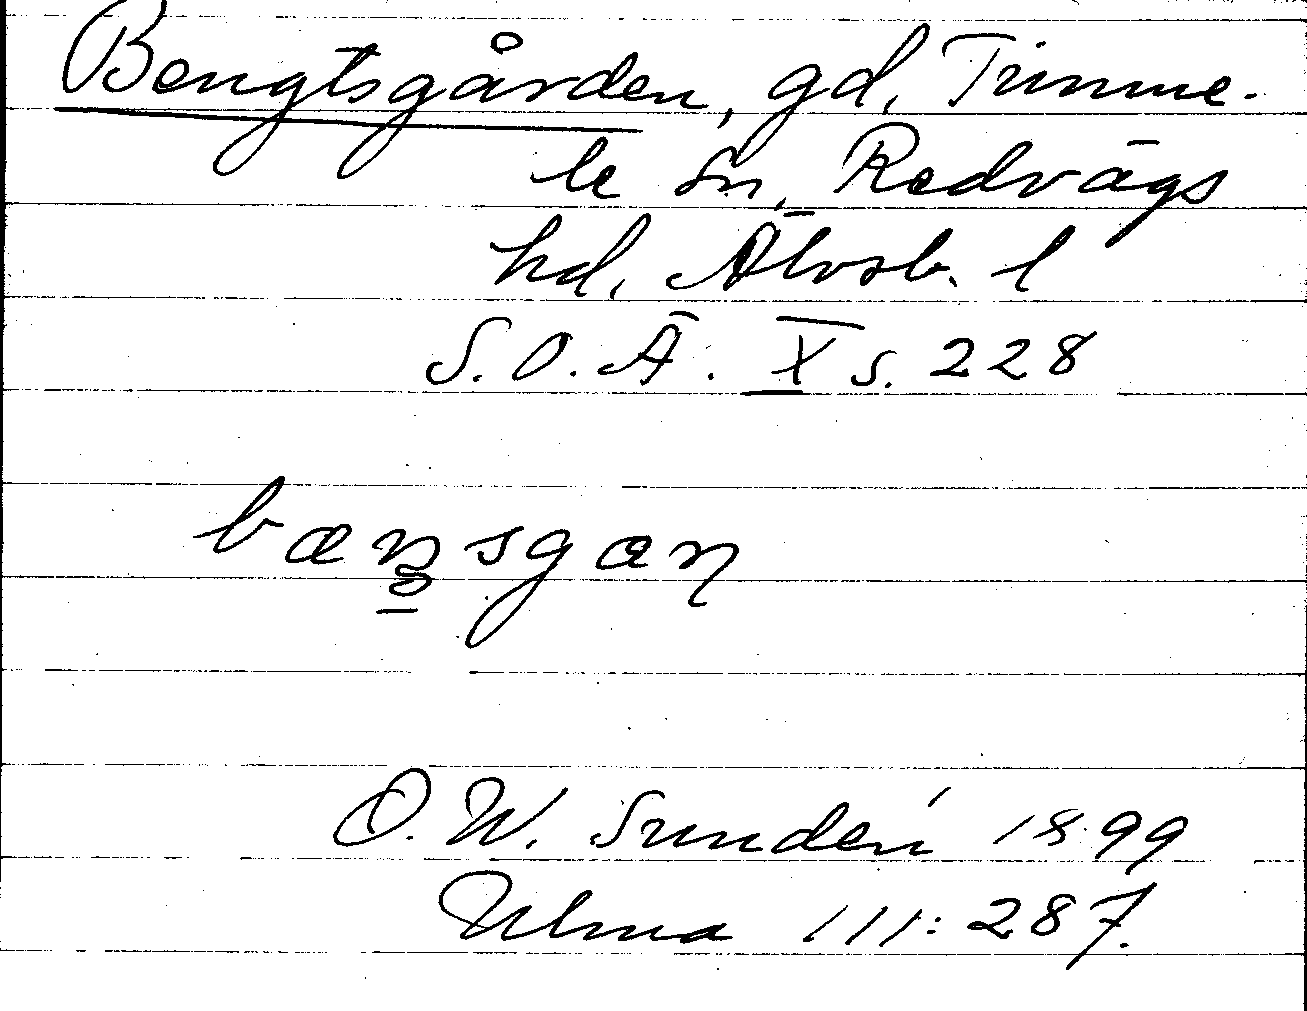 Bengtsgården, gd, Timme-
le sn, Redvägs
hd, Älvsb. l
S.O.Ä. X s. 228
bæn̥sgaɳ
O. W. Sundén 1899
Ulma 111:287.